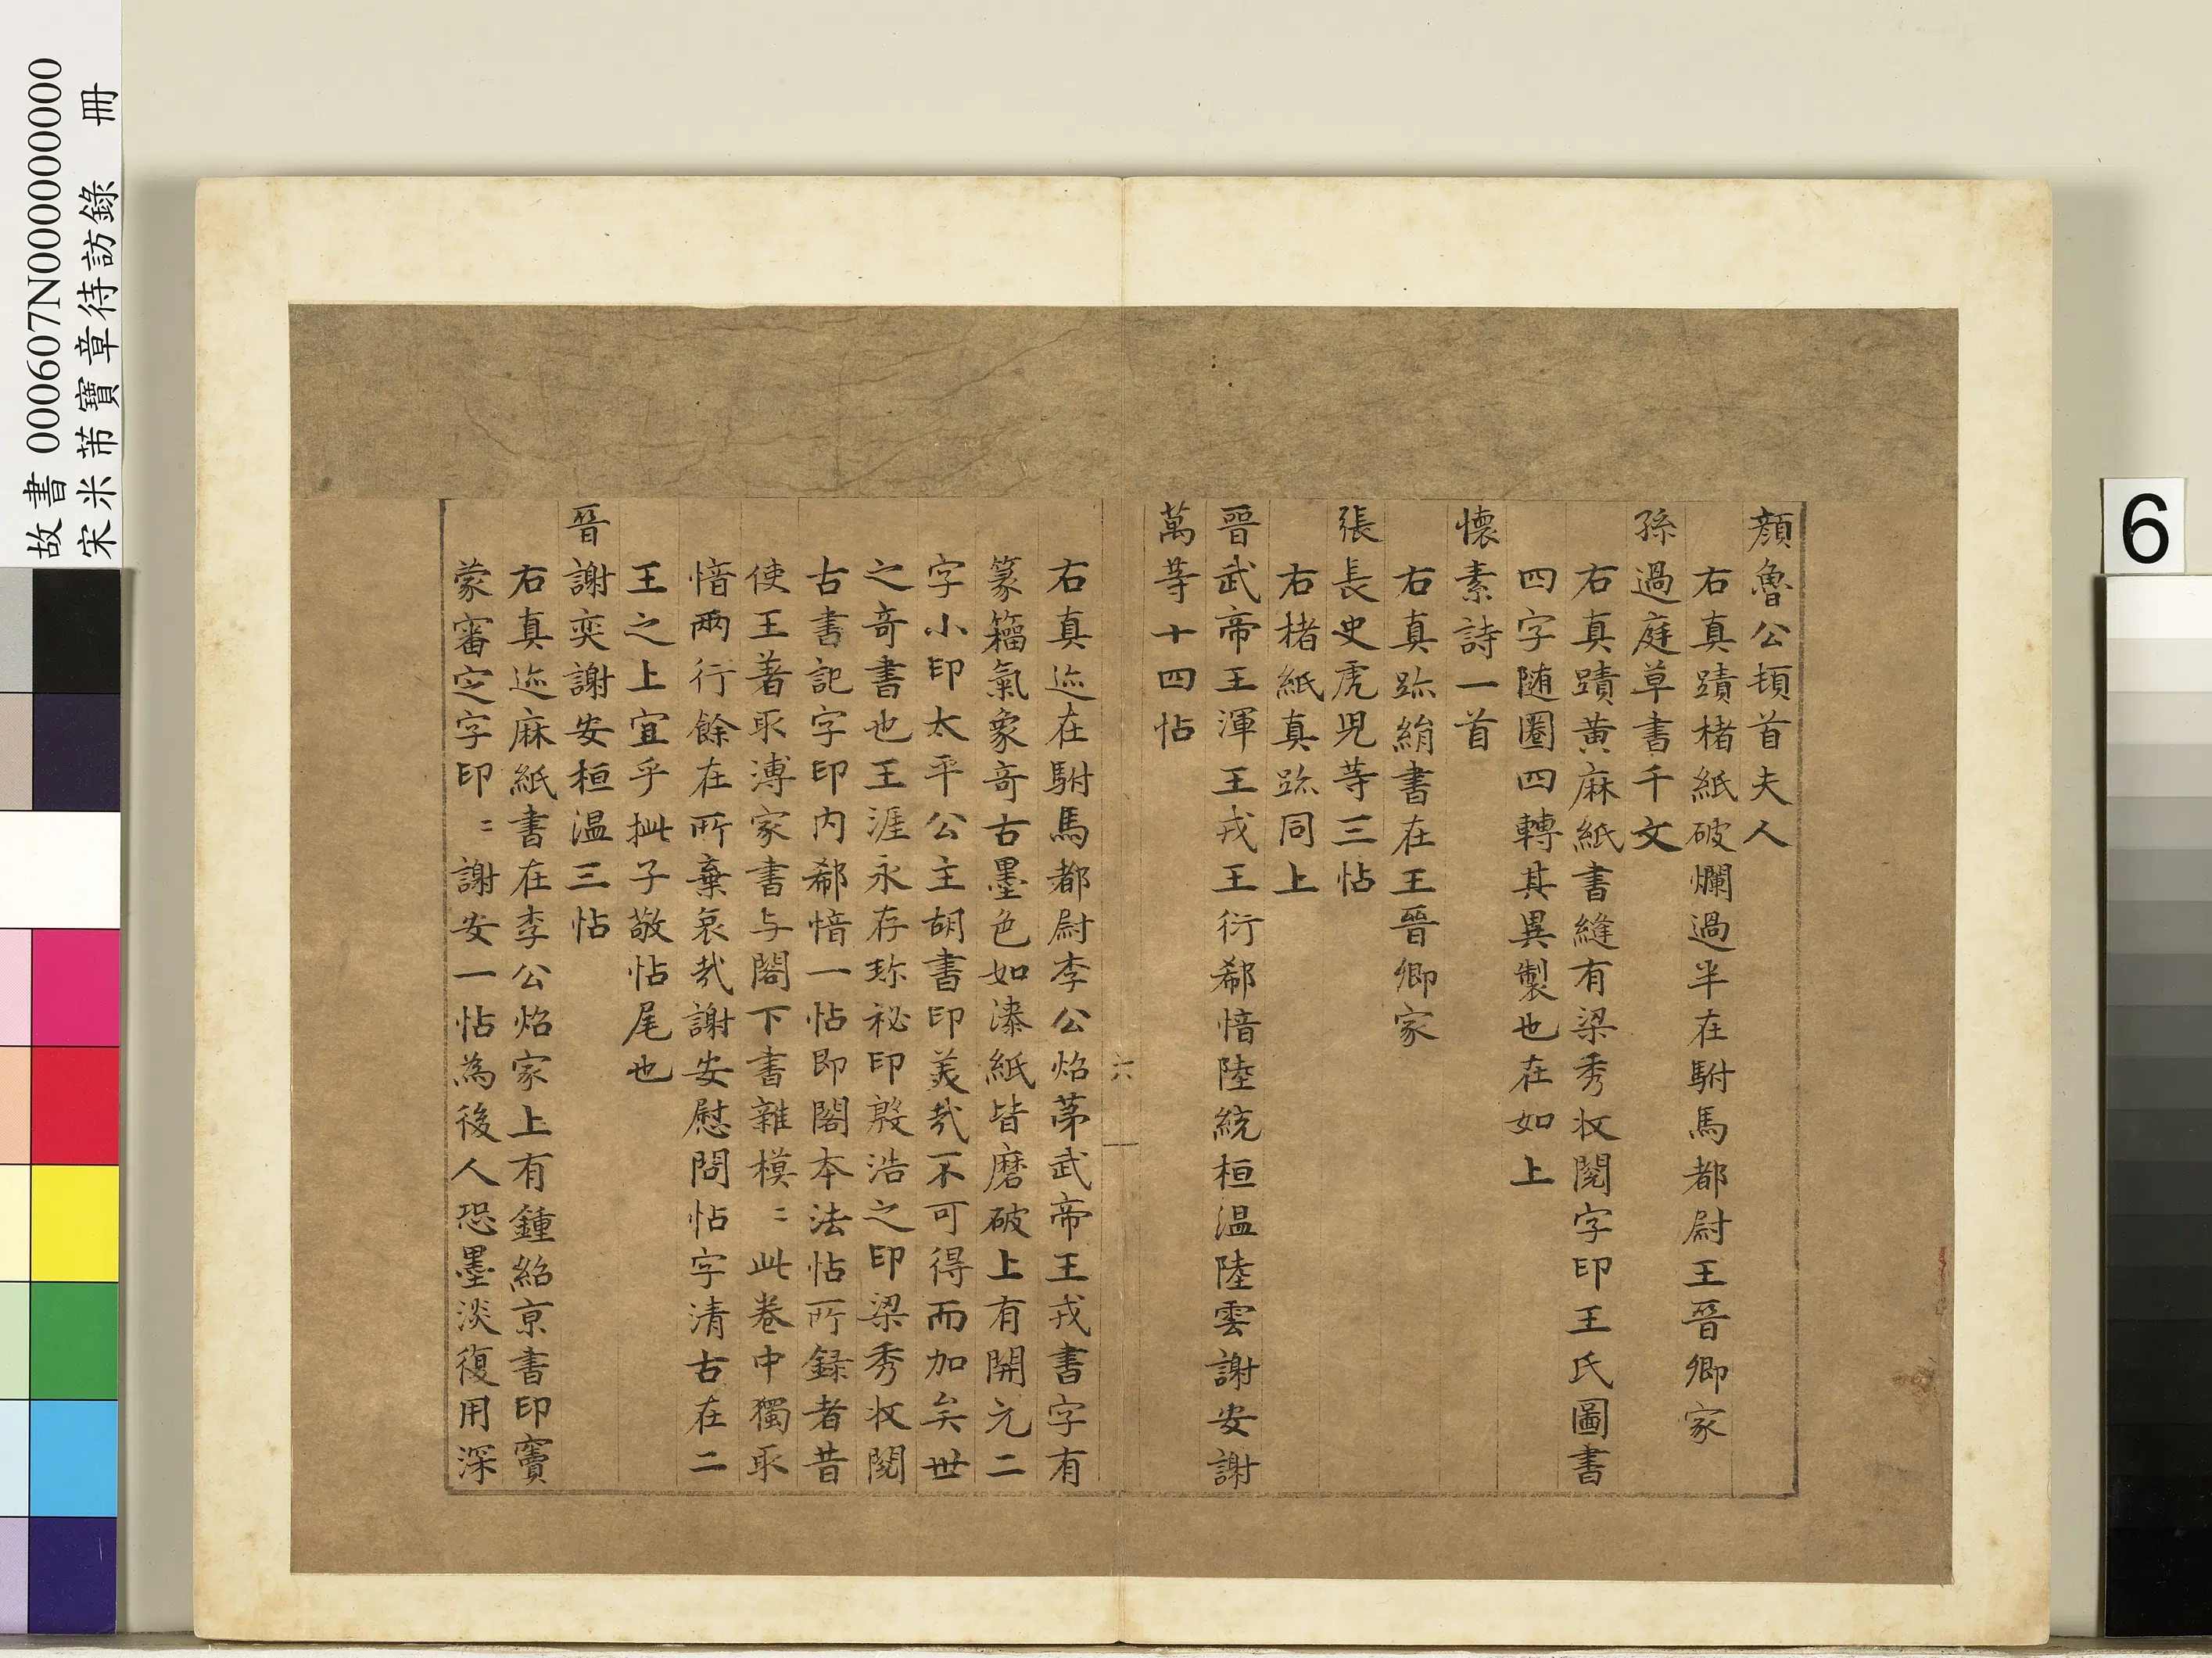 故書 000607N000000000
宋米芾寶章待訪錄 冊
6
顏魯公頓首夫人
右真蹟楮紙破爛過半在駙馬都尉王晉卿家
孫過庭草書千文
右真蹟黄麻紙書縫有梁秀收閱字印王氏圖書
四字随圈四轉其異製也在如上
懷素詩一首
右真跡絹書在王晉卿家
張長史虎児等三帖
右楮紙真跡同上
晉武帝王渾王戎王衍郗愔陸統桓温陸雲謝安謝
萬等十四帖
六
右真迹在駙馬都尉李公炤苐武帝王戎書字有
篆籕氣象奇古墨色如漆紙皆磨破上有開元二
字小印太平公主胡書印美㢤不可得而加矣世
之奇書也王涯永存珎祕印殷浩之印梁秀收閱
古書記字印内郗愔一帖即閣本法帖所録者昔
使王著取溥家書与閣下書雜模〻此卷中獨取
愔兩行餘在所棄哀㢤謝安慰問帖字清古在二
王之上宜乎批子敬帖尾也
晉謝奕謝安桓温三帖
右真迹麻紙書在李公炤家上有鍾紹京書印竇
蒙審定字印〻謝安一帖為後人恐墨淡復用深